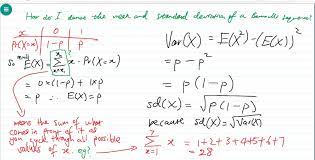 How do I derive the mean and standard deviation of a Bernoulli sequence?
x 0 1
Pr(X=x) 1-p p
So mean E(X) = Σ x · Pr(X=x)
= 0×(1-p) + 1×p
= p ∴ E(X) = p
means the sum of what
comes in front of it as
you cycle through all possible
values of x. eg?
Var(X) = E(X²) - (E(X))²
= p - p²
= p(1-p)
sd(X) = √p(1-p)
because sd(X) = √Var(X)
7
Σ x = 1+2+3+4+5+6+7
x=1
= 28